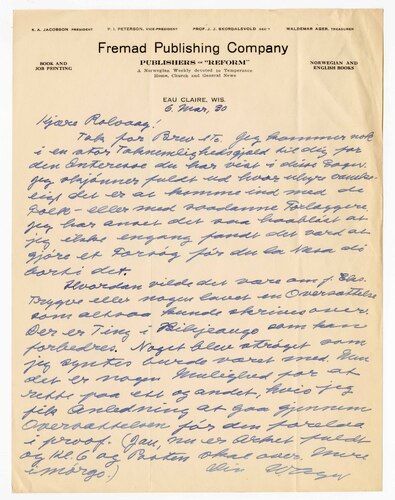 K. A. JACOBSON PRESIDENT P. I. PETERSON, VICE-PRESIDENT PROF. J. J. SKORDALSVOLD SEC'Y WALDEMAR AGER, TREASURER
Fremad Publishing Company
BOOK AND JOB PRINTING
PUBLISHERS OF "REFORM"
A Norwegian Weekly devoted to Temperance
Home, Church and General News
NORWEGIAN AND ENGLISH BOOKS
EAU CLAIRE, WIS.
6 Mar, 30
Kjære Rolvaag!
Tak for Brev etc. Jeg kommer nok
i en stor Taknemlighedsgjæld til dig for
den Interesse du har vist i disse Sager.
Jeg skjønner fuldt ud hvor uhyre vanske-
ligt det er at komme ind med de
Folk – eller med saadanne Forlæggere
jeg har anset det saa haabløst at
jeg ikke engang fandt det værd at
gjøre et Forsøg før du la Næsa di
borti det.
Hvordan vilde det være om f. Eks.
Trygve eller nogen lavet en Oversættelse
som altsaa kunde skrives over.
Der er Ting i som kan
forbedres. Noget blev strøget som
jeg syntes burde været med. Men
det er nogen Mulighed for at
rette paa ett og andet, hvis jeg
fik Anledning at gaa gjennem
Oversættelsen før den forelaa
i proof. (Jau, nu er Arket fuldt
og Kl. 6 og Posten skal over
imorgo.) Din W. Ager